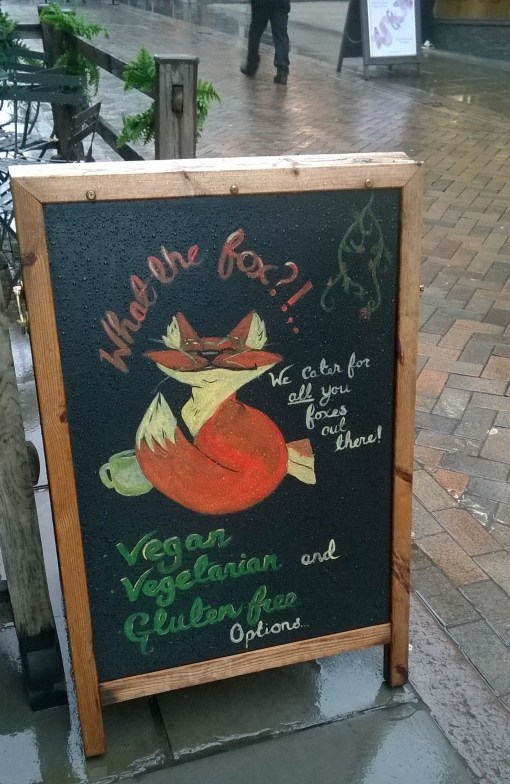 What the fox?!...
We cater for
all you
foxes
out
there!
Vegan
Vegetarian and
Gluten free
Options...